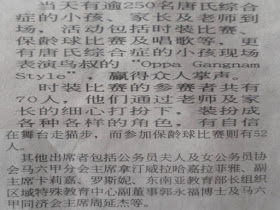 当天有逾250名唐氏综合
症的小孩、家长及老师到
场，活动包括时装比赛、
保龄球比赛及唱歌等，更
有唐氏综合症的小孩现场
表演鸟叔的“Oppa Gangnam
Style”，赢得众人掌声。
时装比赛的参赛者共有
70人，他们通过老师及家
长的细心打扮下，装扮成
各种各样的角色，有自信
在舞台走猫步，而参加保龄球比赛则有52
人。
其他出席者包括公务员夫人及女公务员协
会马六甲分会主席拿汀威拉哈嘉菲雅、副
主席卡莉嘉、罗斯妮、东南亚教育部长组织
区域特殊教育中心副董事郭永福博士及马六
甲同济会主席周延杰等。